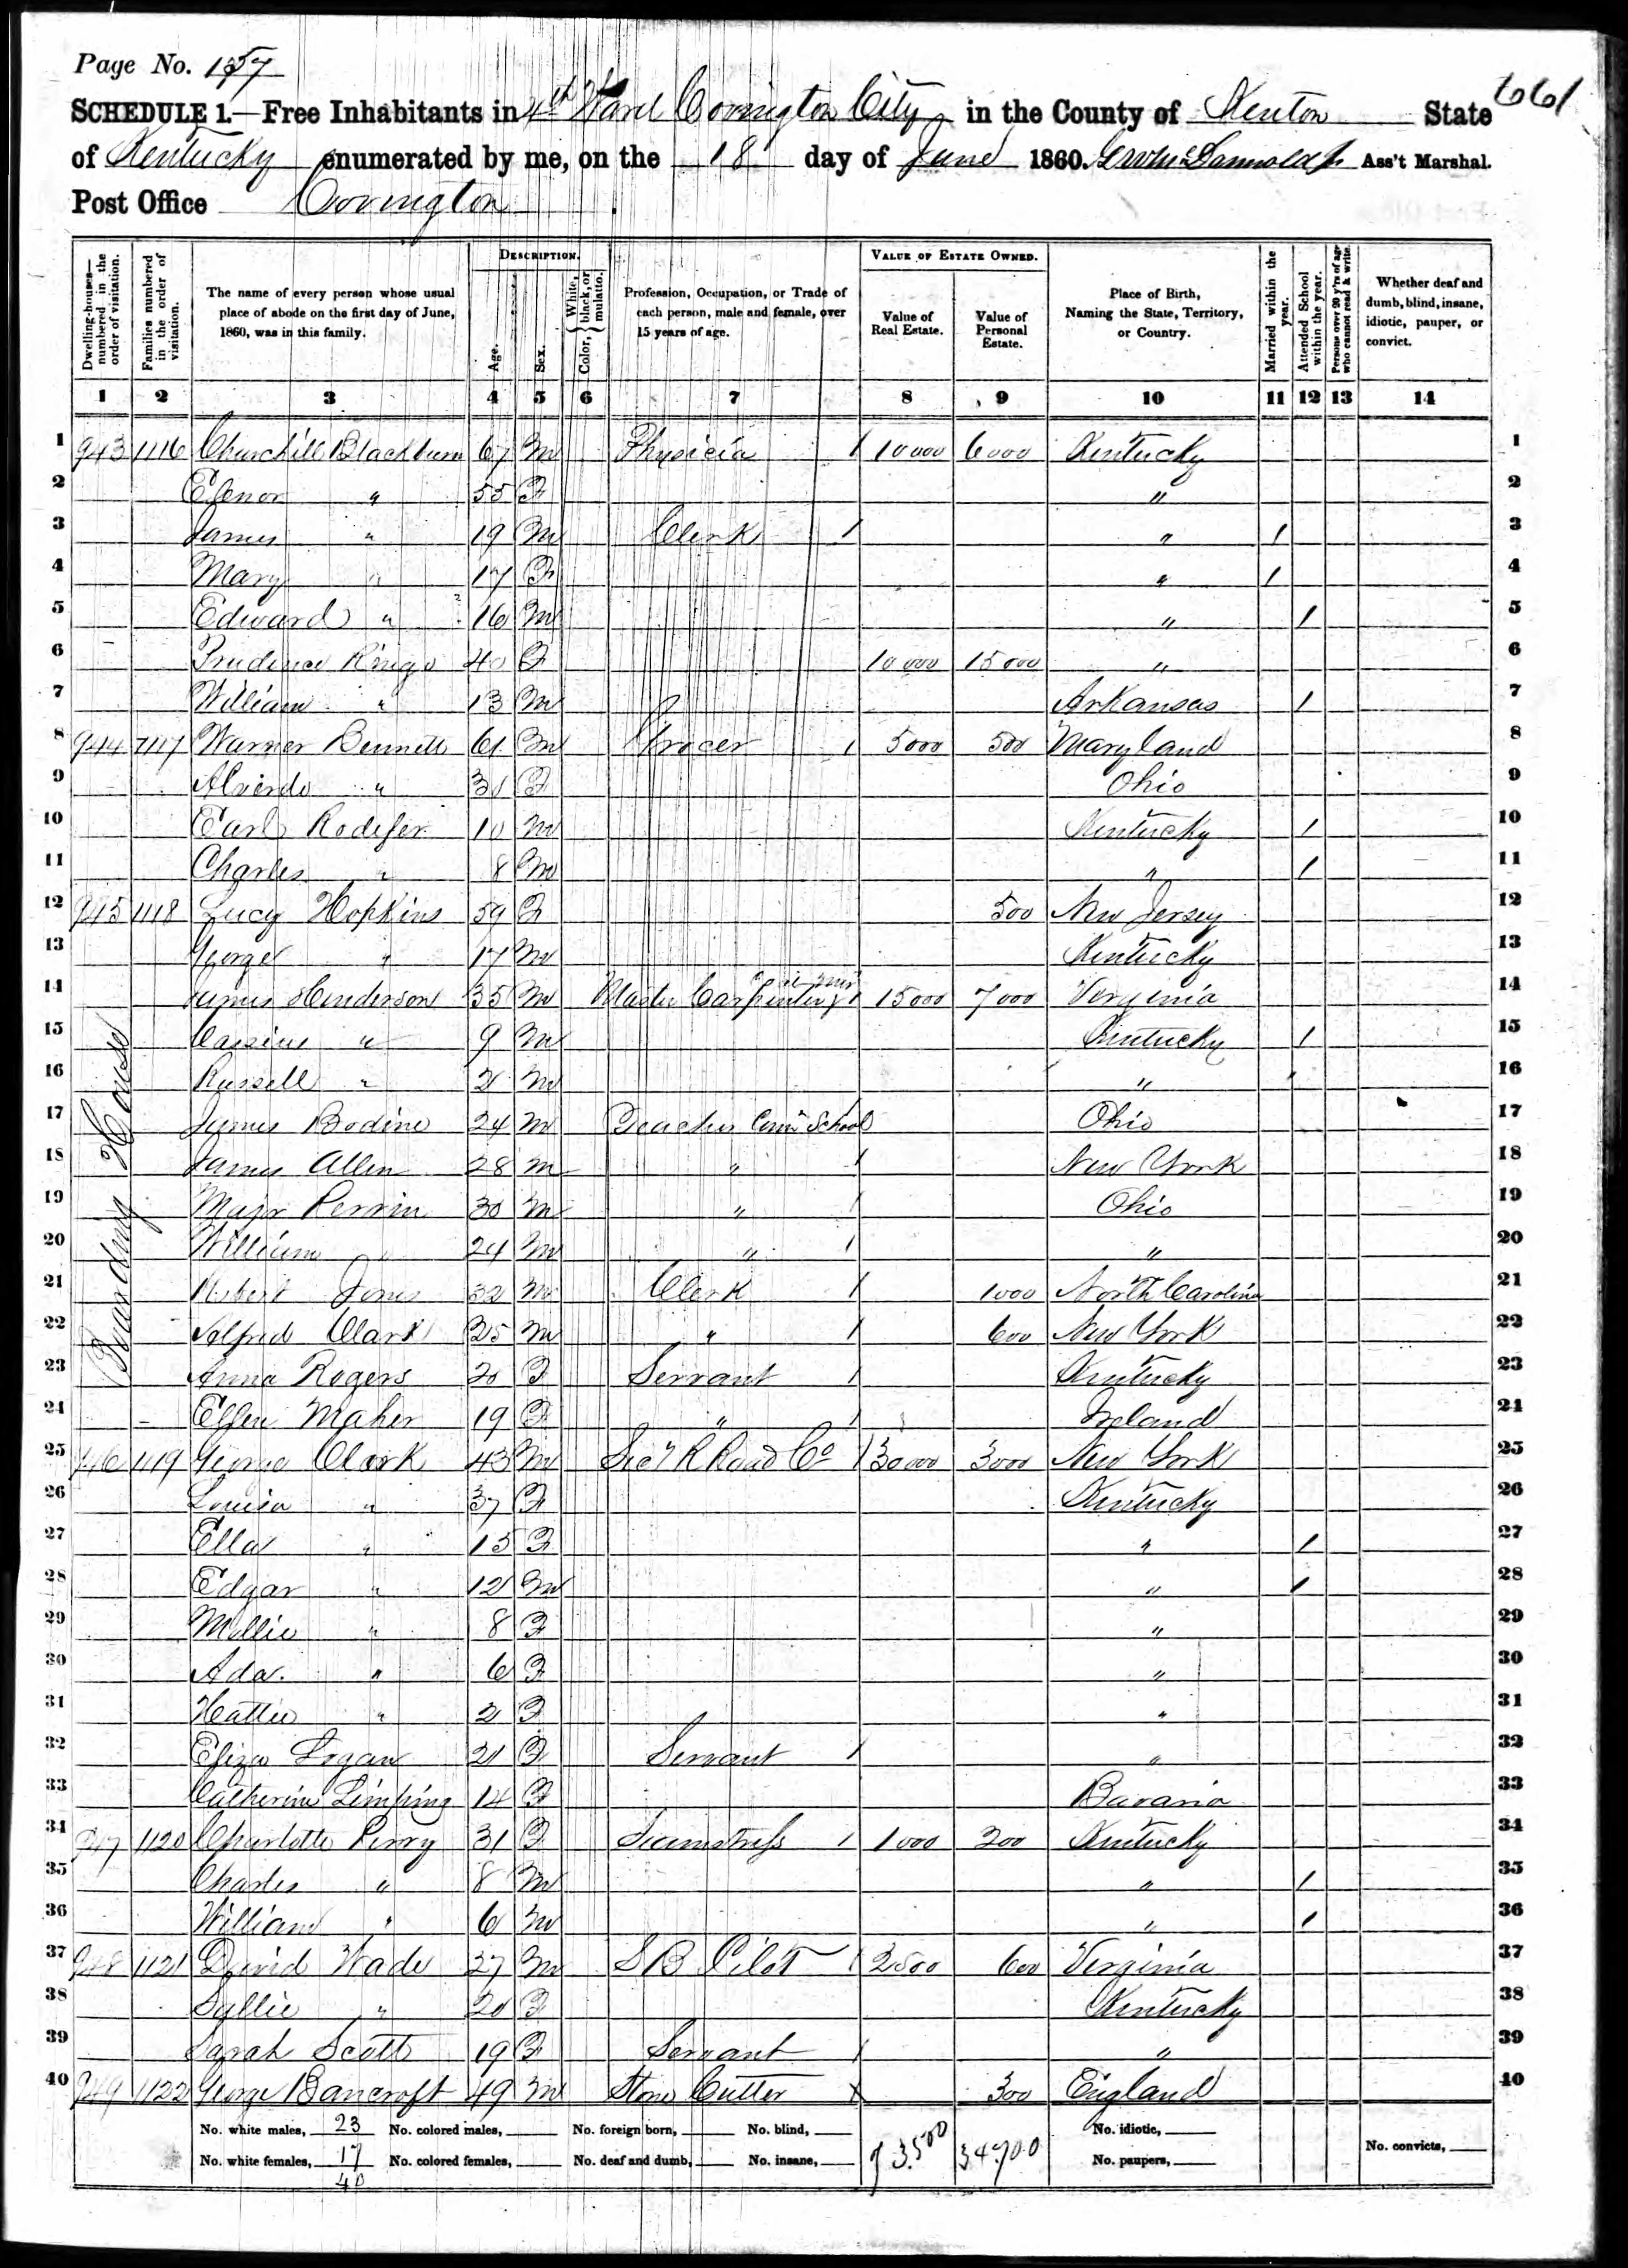 Page No. 157
661
SCHEDULE 1.—Free Inhabitants in 4th Ward Covington City in the County of Kenton State
of Kentucky enumerated by me, on the 18 day of June 1860. Ass't Marshal.
Post Office Covington
Dwelling-houses—numbered in the order of visitation.
Families numbered in the order of visitation.
The name of every person whose usual place of abode on the first day of June, 1860, was in this family.
DESCRIPTION.
Age.
Sex.
Color, { White, black, or mulatto.
Profession, Occupation, or Trade of each person, male and female, over 15 years of age.
VALUE OF ESTATE OWNED.
Value of Real Estate.
Value of Personal Estate.
Place of Birth, Naming the State, Territory, or Country.
Married within the year.
Attended School within the year.
Persons over 20 y'rs of age who cannot read & write.
Whether deaf and dumb, blind, insane, idiotic, pauper, or convict.
1 2 3 4 5 6 7 8 9 10 11 12 13 14
1 943 1116 Churchill Blackburn 67 M Physicia 1 10000 6000 Kentucky 1
2 Elenor " 55 F " 2
3 James " 19 M Clerk 1 " 1 3
4 Mary " 17 F " 1 4
5 Edward " 16 M " 1 5
6 Prudence Ringo 40 F 10000 15000 " 6
7 William " 13 M Arkansas 1 7
8 944 1117 Warner Bennett 61 M Grocer 1 5000 500 Maryland 8
9 " 31 F Ohio 9
10 Earl Rodefer 10 M Kentucky 1 10
11 Charles " 8 M " 1 11
12 945 1118 Lucy Hopkins 59 F 500 New Jersey 12
13 George " 17 M Kentucky 13
14 James Henderson 35 M Master Carpenter 1 15000 7000 Virginia 14
15 Cassius " 9 M Kentucky 1 15
16 Russell " 2 M " 16
17 James Bodine 24 M Teacher Com School Ohio 17
18 James Allen 28 M " 1 New York 18
19 Major Perrin 30 M " 1 Ohio 19
20 William " 24 M " 1 " 20
21 Robert Jones 32 M Clerk 1 1000 North Carolina 21
22 Alfred Clark 25 M " 1 600 New York 22
23 Anna Rogers 20 F Servant 1 Kentucky 23
24 Ellen Maher 19 F " 1 Ireland 24
Boarding House
25 946 1119 George Clark 43 M Secy R Road Co 1 30000 3000 New York 25
26 Louisa " 37 F Kentucky 26
27 Ella " 15 F " 1 27
28 Edgar " 12 M " 1 28
29 Mollie " 8 F " 29
30 Ada. " 6 F " 30
31 Hattie " 2 F " 31
32 Eliza Logan 21 F Servant 1 " 32
33 Catherine Limping 14 F Bavaria 33
34 947 1120 Charlotte Perry 31 F Seamstress 1 1000 200 Kentucky 34
35 Charles " 8 M " 1 35
36 William " 6 M " 1 36
37 948 1121 David Wade 27 M S B Pilot 1 2500 600 Virginia 37
38 Sallie " 20 F Kentucky 38
39 Sarah Scott 19 F Servant 1 " 39
40 949 1122 George Bancroft 49 M Stone Cutter 300 England 40
No. white males, 23 No. colored males, No. foreign born, No. blind, No. idiotic,
No. white females, 17 No. colored females, No. deaf and dumb, No. insane, 73500 34700 No. paupers, No. convicts,
40